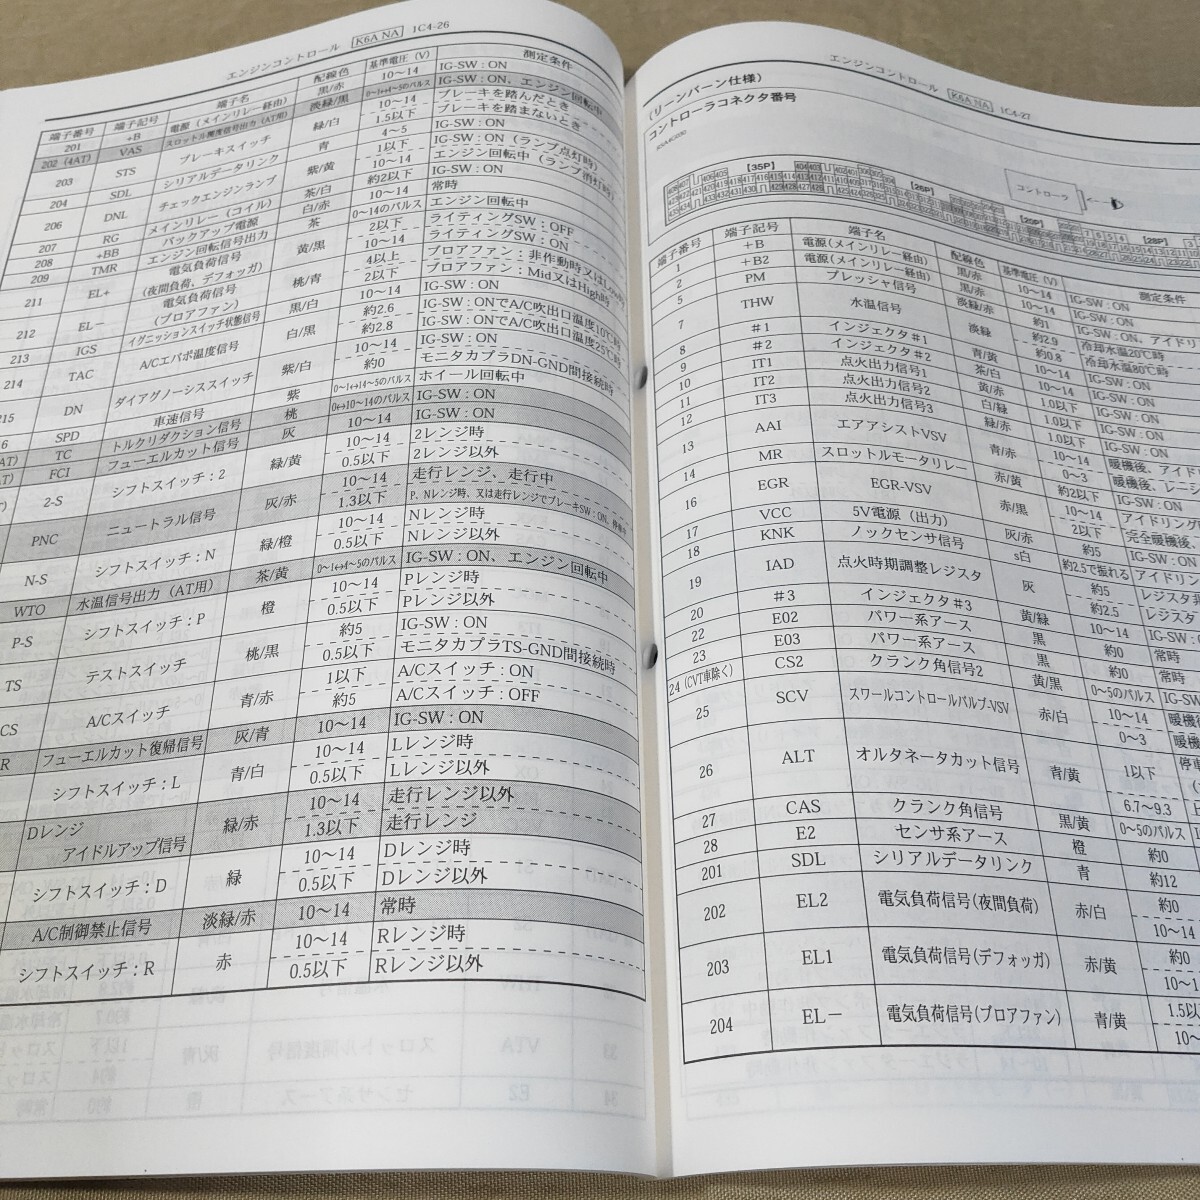 エンジンコントロール K6A NA 1C4-26
端子番号 端子記号 端子名 配線色 基準電圧(V) 測定条件
201 +B 電源(メインリレー経由) 黒/赤 10〜14 IG-SW:ON
202(4AT) VAS スロットル開度信号出力(AT用) 淡緑/黒 0〜1↔4〜5のパルス IG-SW:ON、エンジン回転中
203 STS ブレーキスイッチ 緑/白 10〜14 ブレーキを踏んだとき
1.5以下 ブレーキを踏まないとき
204 SDL シリアルデータリンク 青 4〜5 IG-SW:ON
206 DNL チェックエンジンランプ 紫/黄 1以下 IG-SW:ON(ランプ点灯時)
10〜14 エンジン回転中(ランプ消灯時)
207 RG メインリレー(コイル) 茶/白 約2以下 IG-SW:ON
208 +BB バックアップ電源 白/赤 10〜14 常時
209 TMR エンジン回転信号出力 茶 0〜14のパルス エンジン回転中
211 EL+ 電気負荷信号(夜間負荷、デフォッガ) 黄/黒 2以下 ライティングSW:OFF
10〜14 ライティングSW:ON
212 EL− 電気負荷信号(ブロアファン) 桃/青 4以上 ブロアファン:非作動時又はLow時
2以下 ブロアファン:Mid又はHigh時
213 IGS イグニッションスイッチ状態信号 黒/白 10〜14 IG-SW:ON
214 TAC A/Cエバポ温度信号 白/黒 約2.6 IG-SW:ONでA/C吹出口温度10℃時
約2.8 IG-SW:ONでA/C吹出口温度25℃時
215 DN ダイアグノーシススイッチ 紫/白 10〜14 IG-SW:ON
約0 モニタカプラDN-GND間接続時
SPD 車速信号 紫 0〜1↔14〜5のパルス ホイール回転中
TC トルクリダクション信号 桃 0↔10〜14のパルス IG-SW:ON
FCI フューエルカット信号 灰 10〜14 IG-SW:ON
2-S シフトスイッチ:2 緑/黄 10〜14 2レンジ時
0.5以下 2レンジ以外
PNC ニュートラル信号 灰/赤 10〜14 走行レンジ、走行中
1.3以下 P、Nレンジ時、又は走行レンジでブレーキSW:ON、停車
N-S シフトスイッチ:N 緑/橙 10〜14 Nレンジ時
0.5以下 Nレンジ以外
WTO 水温信号出力(AT用) 茶/黄 0〜1↔4〜5のパルス IG-SW:ON、エンジン回転中
P-S シフトスイッチ:P 橙 10〜14 Pレンジ時
0.5以下 Pレンジ以外
TS テストスイッチ 桃/黒 約5 IG-SW:ON
0.5以下 モニタカプラTS-GND間接続時
CS A/Cスイッチ 青/赤 1以下 A/Cスイッチ:ON
約5 A/Cスイッチ:OFF
R フューエルカット復帰信号 灰/青 10〜14 IG-SW:ON
シフトスイッチ:L 青/白 10〜14 Lレンジ時
0.5以下 Lレンジ以外
Dレンジ アイドルアップ信号 緑/赤 10〜14 走行レンジ以外
1.3以下 走行レンジ
シフトスイッチ:D 緑 10〜14 Dレンジ時
0.5以下 Dレンジ以外
A/C制御禁止信号 淡緑/赤 10〜14 常時
シフトスイッチ:R 赤 10〜14 Rレンジ時
0.5以下 Rレンジ以外
エンジンコントロール K6A NA 1C4-27
(リーンバーン仕様)
コントローラコネクタ番号
[35P] [26P] コントローラ
[28P]
端子番号 端子記号 端子名 配線色 基準電圧(V) 測定条件
1 +B 電源(メインリレー経由) 黒/赤 10〜14 IG-SW:ON
2 +B2 電源(メインリレー経由) 黒/赤 10〜14 IG-SW:ON
5 PM プレッシャ信号 淡緑/赤 約1 IG-SW:ON、アイドリ
7 THW 水温信号 淡緑 約2.9 冷却水温20℃時
約0.8 冷却水温80℃時
8 #1 インジェクタ#1 青/黄 10〜14 IG-SW:ON
9 #2 インジェクタ#2 茶/白 10〜14 IG-SW:ON
10 IT1 点火出力信号1 黄/赤 1.0以下 IG-SW:ON
11 IT2 点火出力信号2 白/緑 1.0以下 IG-SW:ON
12 IT3 点火出力信号3 緑/赤 1.0以下 IG-SW:ON
13 AAI エアアシストVSV 青/赤 10〜14 暖機後、アイド
0〜3 暖機後、レーシ
14 MR スロットルモータリレー 赤/黄 約2以下 IG-SW:ON
16 EGR EGR-VSV 赤/黒 10〜14 アイドリング
2以下 完全暖機後、
17 VCC 5V電源(出力) 灰/赤 約5 IG-SW:ON
18 KNK ノックセンサ信号 s白 約2.5で振れる アイドリン
19 IAD 点火時期調整レジスタ 灰 約5 レジスタ非
約2.5 レジスタ
20 #3 インジェクタ#3 黄/緑 10〜14 IG-SW:
22 E02 パワー系アース 黒 約0 常時
23 E03 パワー系アース 黒 約0 常時
24(CVT車除く) CS2 クランク角信号2 黄/黒 0〜5のパルス IG-SW
25 SCV スワールコントロールバルブ-VSV 赤/白 10〜14 暖機
0〜3 暖機
26 ALT オルタネータカット信号 青/黄 1以下 停車
6.7〜9.3 上
27 CAS クランク角信号 黒/黄 0〜5のパルス IG-S
28 E2 センサ系アース 橙 約0
201 SDL シリアルデータリンク 青 約12
202 EL2 電気負荷信号(夜間負荷) 赤/白 約0
10〜14
203 EL1 電気負荷信号(デフォッガ) 赤/黄 約0
10〜1
204 EL− 電気負荷信号(ブロアファン) 青/黄 1.5以
10〜